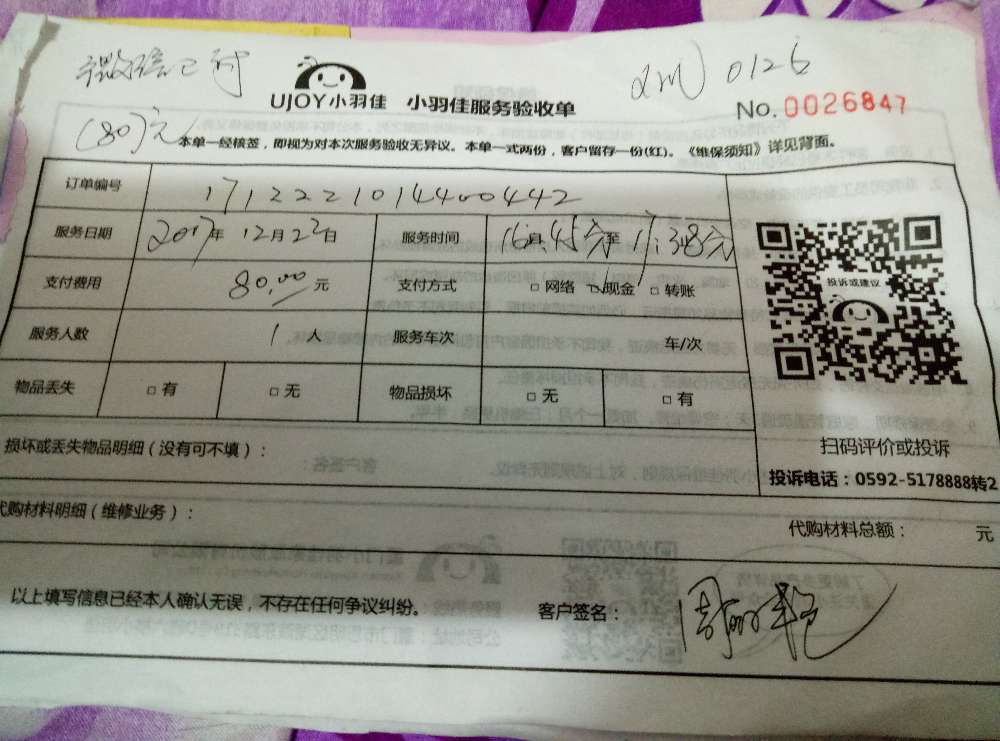 微信已付
XM 0126
UJOY小羽佳 小羽佳服务验收单
No.0026847
(80)元
本单一经核签，即视为对本次服务验收无异议。本单一式两份，客户留存一份(红)。《维保须知》详见背面。
订单编号 1712221014400442
服务日期 2017年 12月22日 服务时间 16点45分至17:38分
支付费用 80.00元 支付方式 □网络 □现金 □转账
投诉或建议
服务人数 1人 服务车次 车/次
物品丢失 □有 □无 物品损坏 □无 □有
损坏或丢失物品明细(没有可不填)：
扫码评价或投诉
投诉电话：0592-5178888转2
代购材料明细(维修业务)：
代购材料总额： 元
以上填写信息已经本人确认无误，不存在任何争议纠纷。 客户签名：